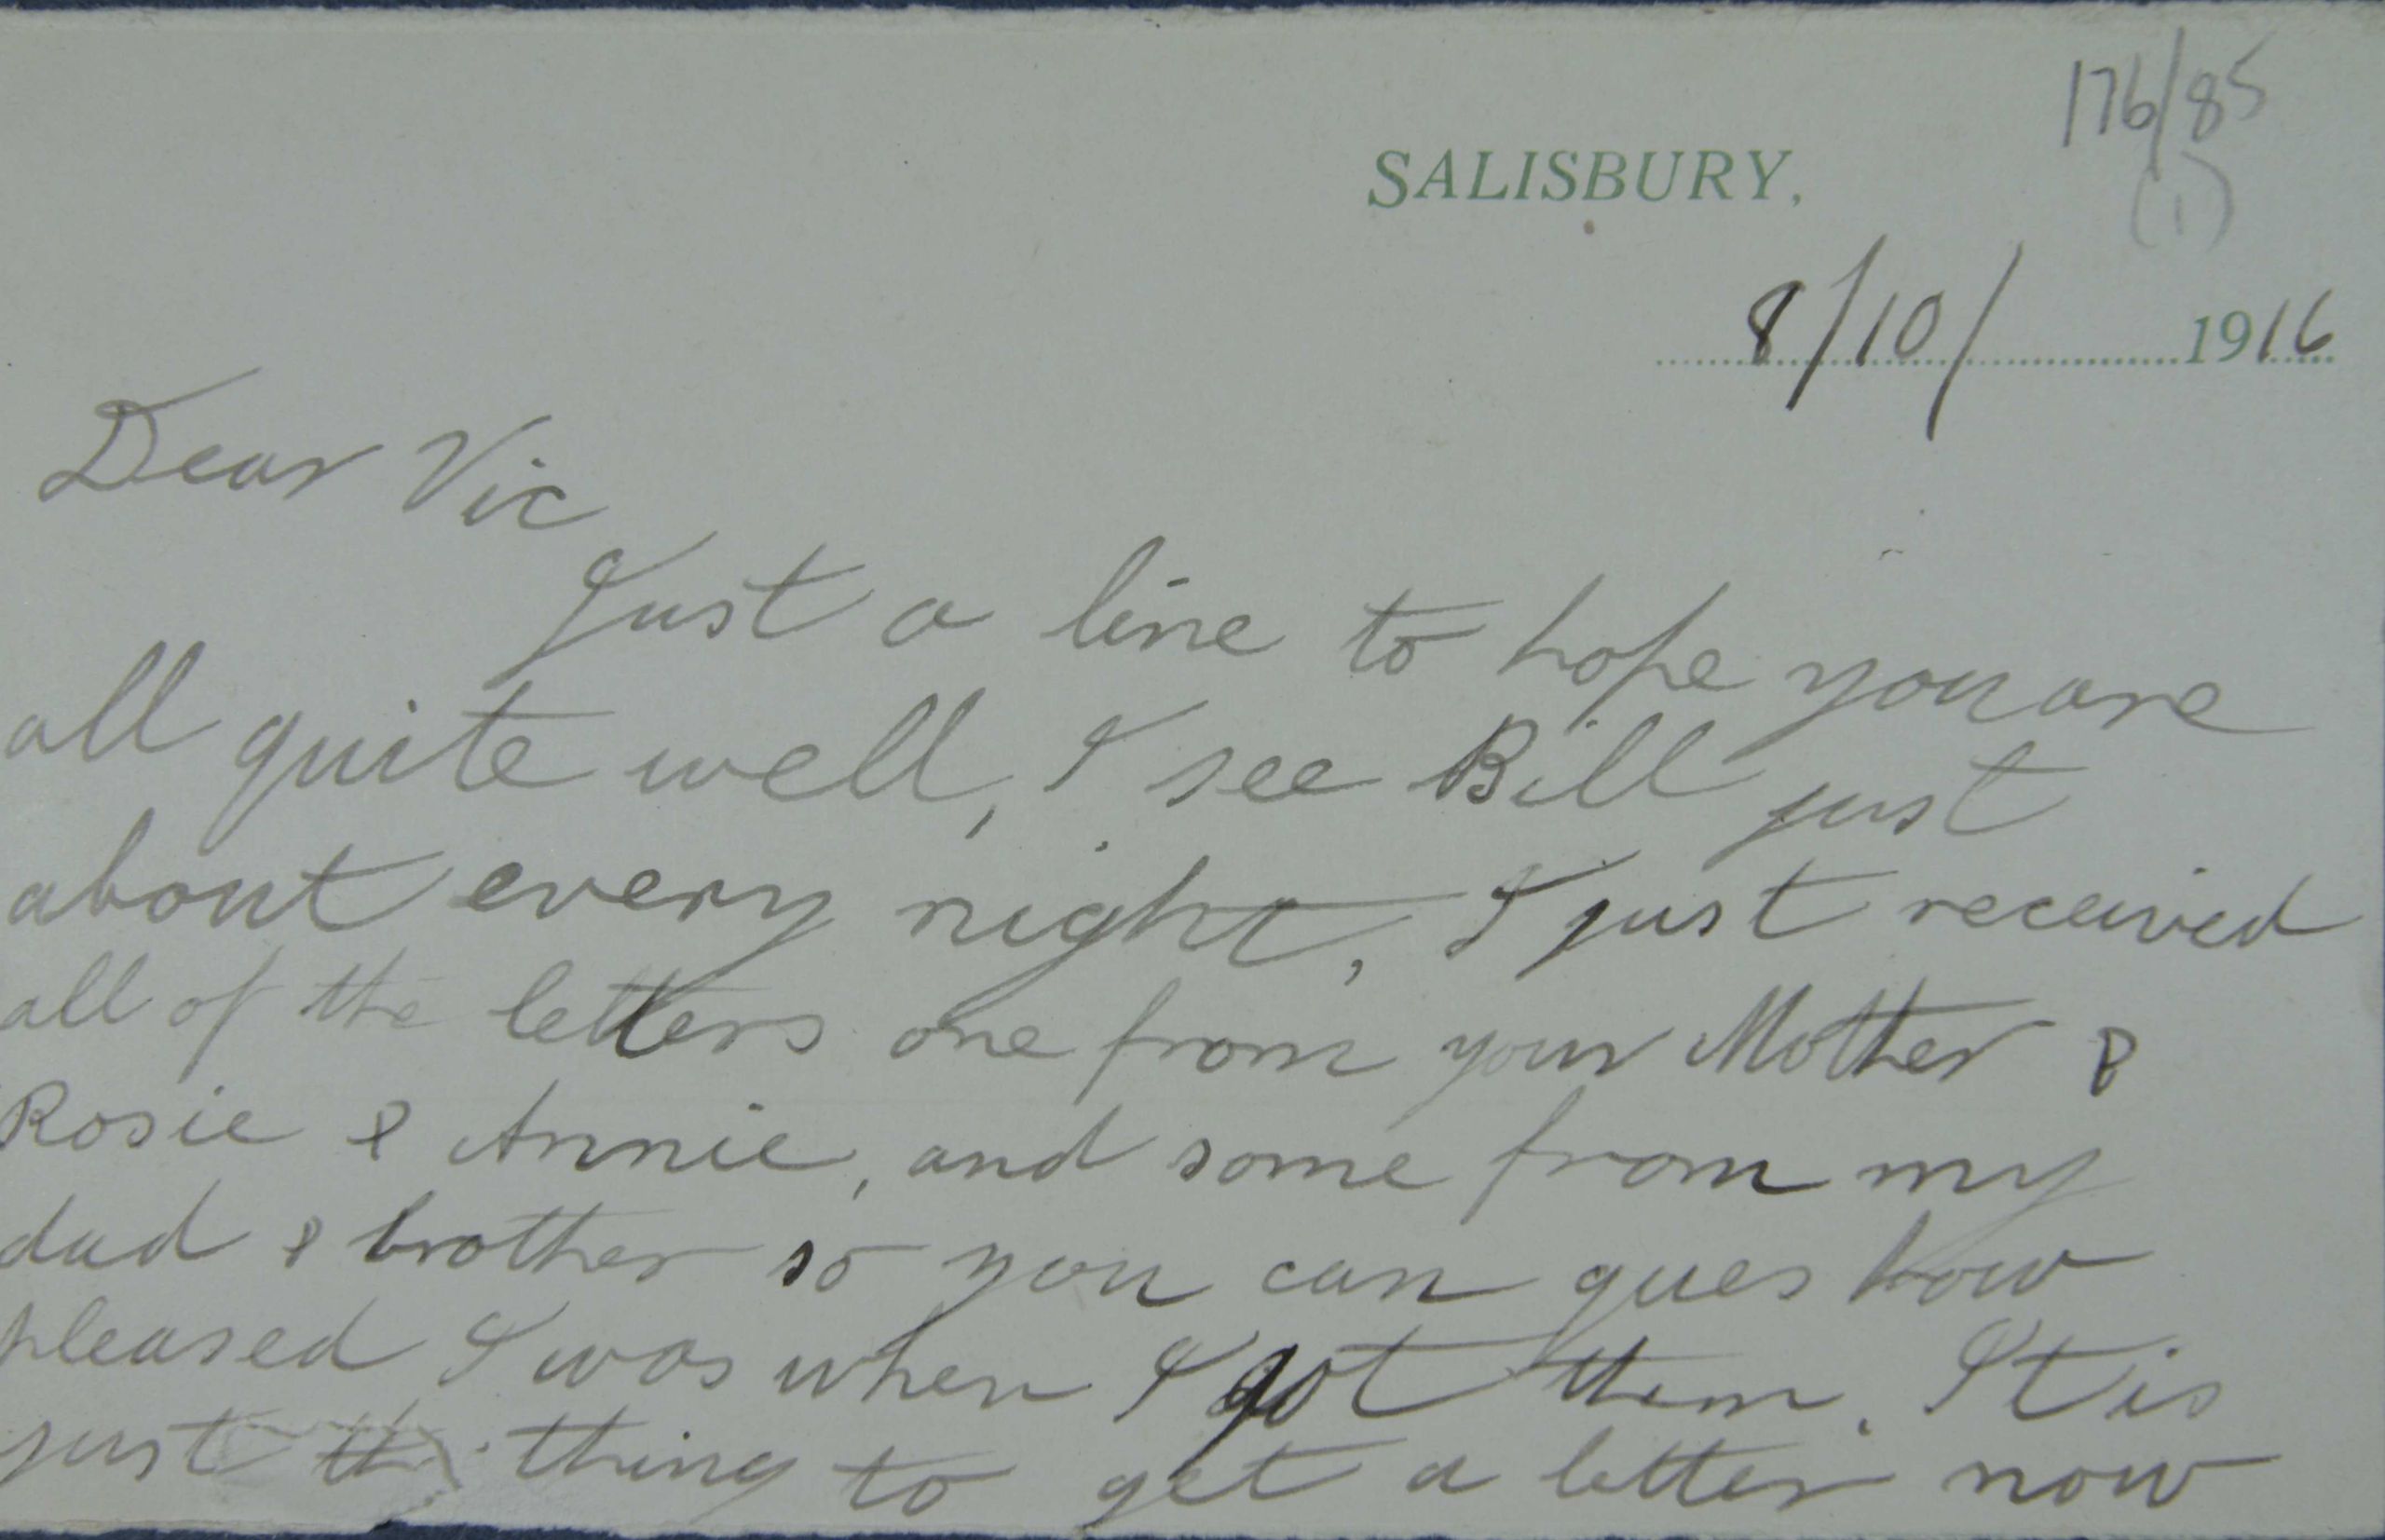 176/85
(1)
SALISBURY,
8/10/ 1916
Dear Vic
Just a line to hope you are
all quite well, I see Bill just
about every night, I just received
all of the letters one from your Mother &
Rosie & Annie, and some from my
dad & brother so you can gues how
pleased I was when I got them. It is
just the thing to get a letter now